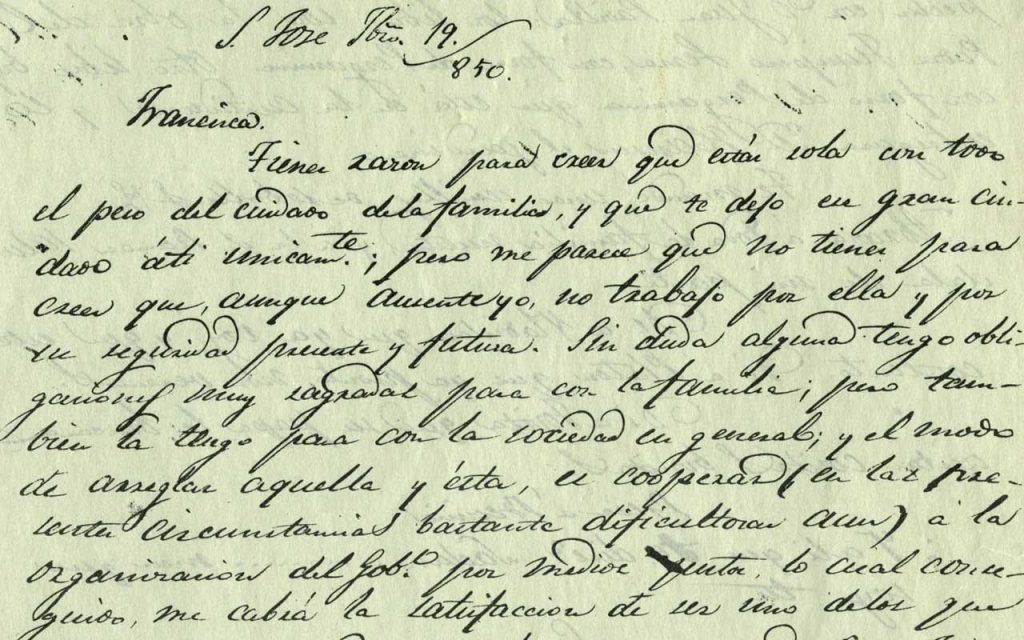 S. Jose 7bre. 19.
850.
Francisca.
Tienes razon para creer que estás sola con todo
el peso del cuidado de la familia, y que te dejo en gran cui-
dado á ti unicamte.; pero me parece que no tienes para
creer que, aunque ausente yo, no trabajo por ella y por
su seguridad presente y futura. Sin duda alguna tengo obli-
gaciones muy sagradas para con la familia; pero tam-
bien la tengo para con la sociedad en general; y el modo
de arreglar aquella y ésta, es cooperar (en las pre-
sentes circunstancias bastante dificultosas aun) á la
organizacion del Gobo. por medios justos, lo cual conse-
guido, me cabrá la satisfaccion de ser uno de los que